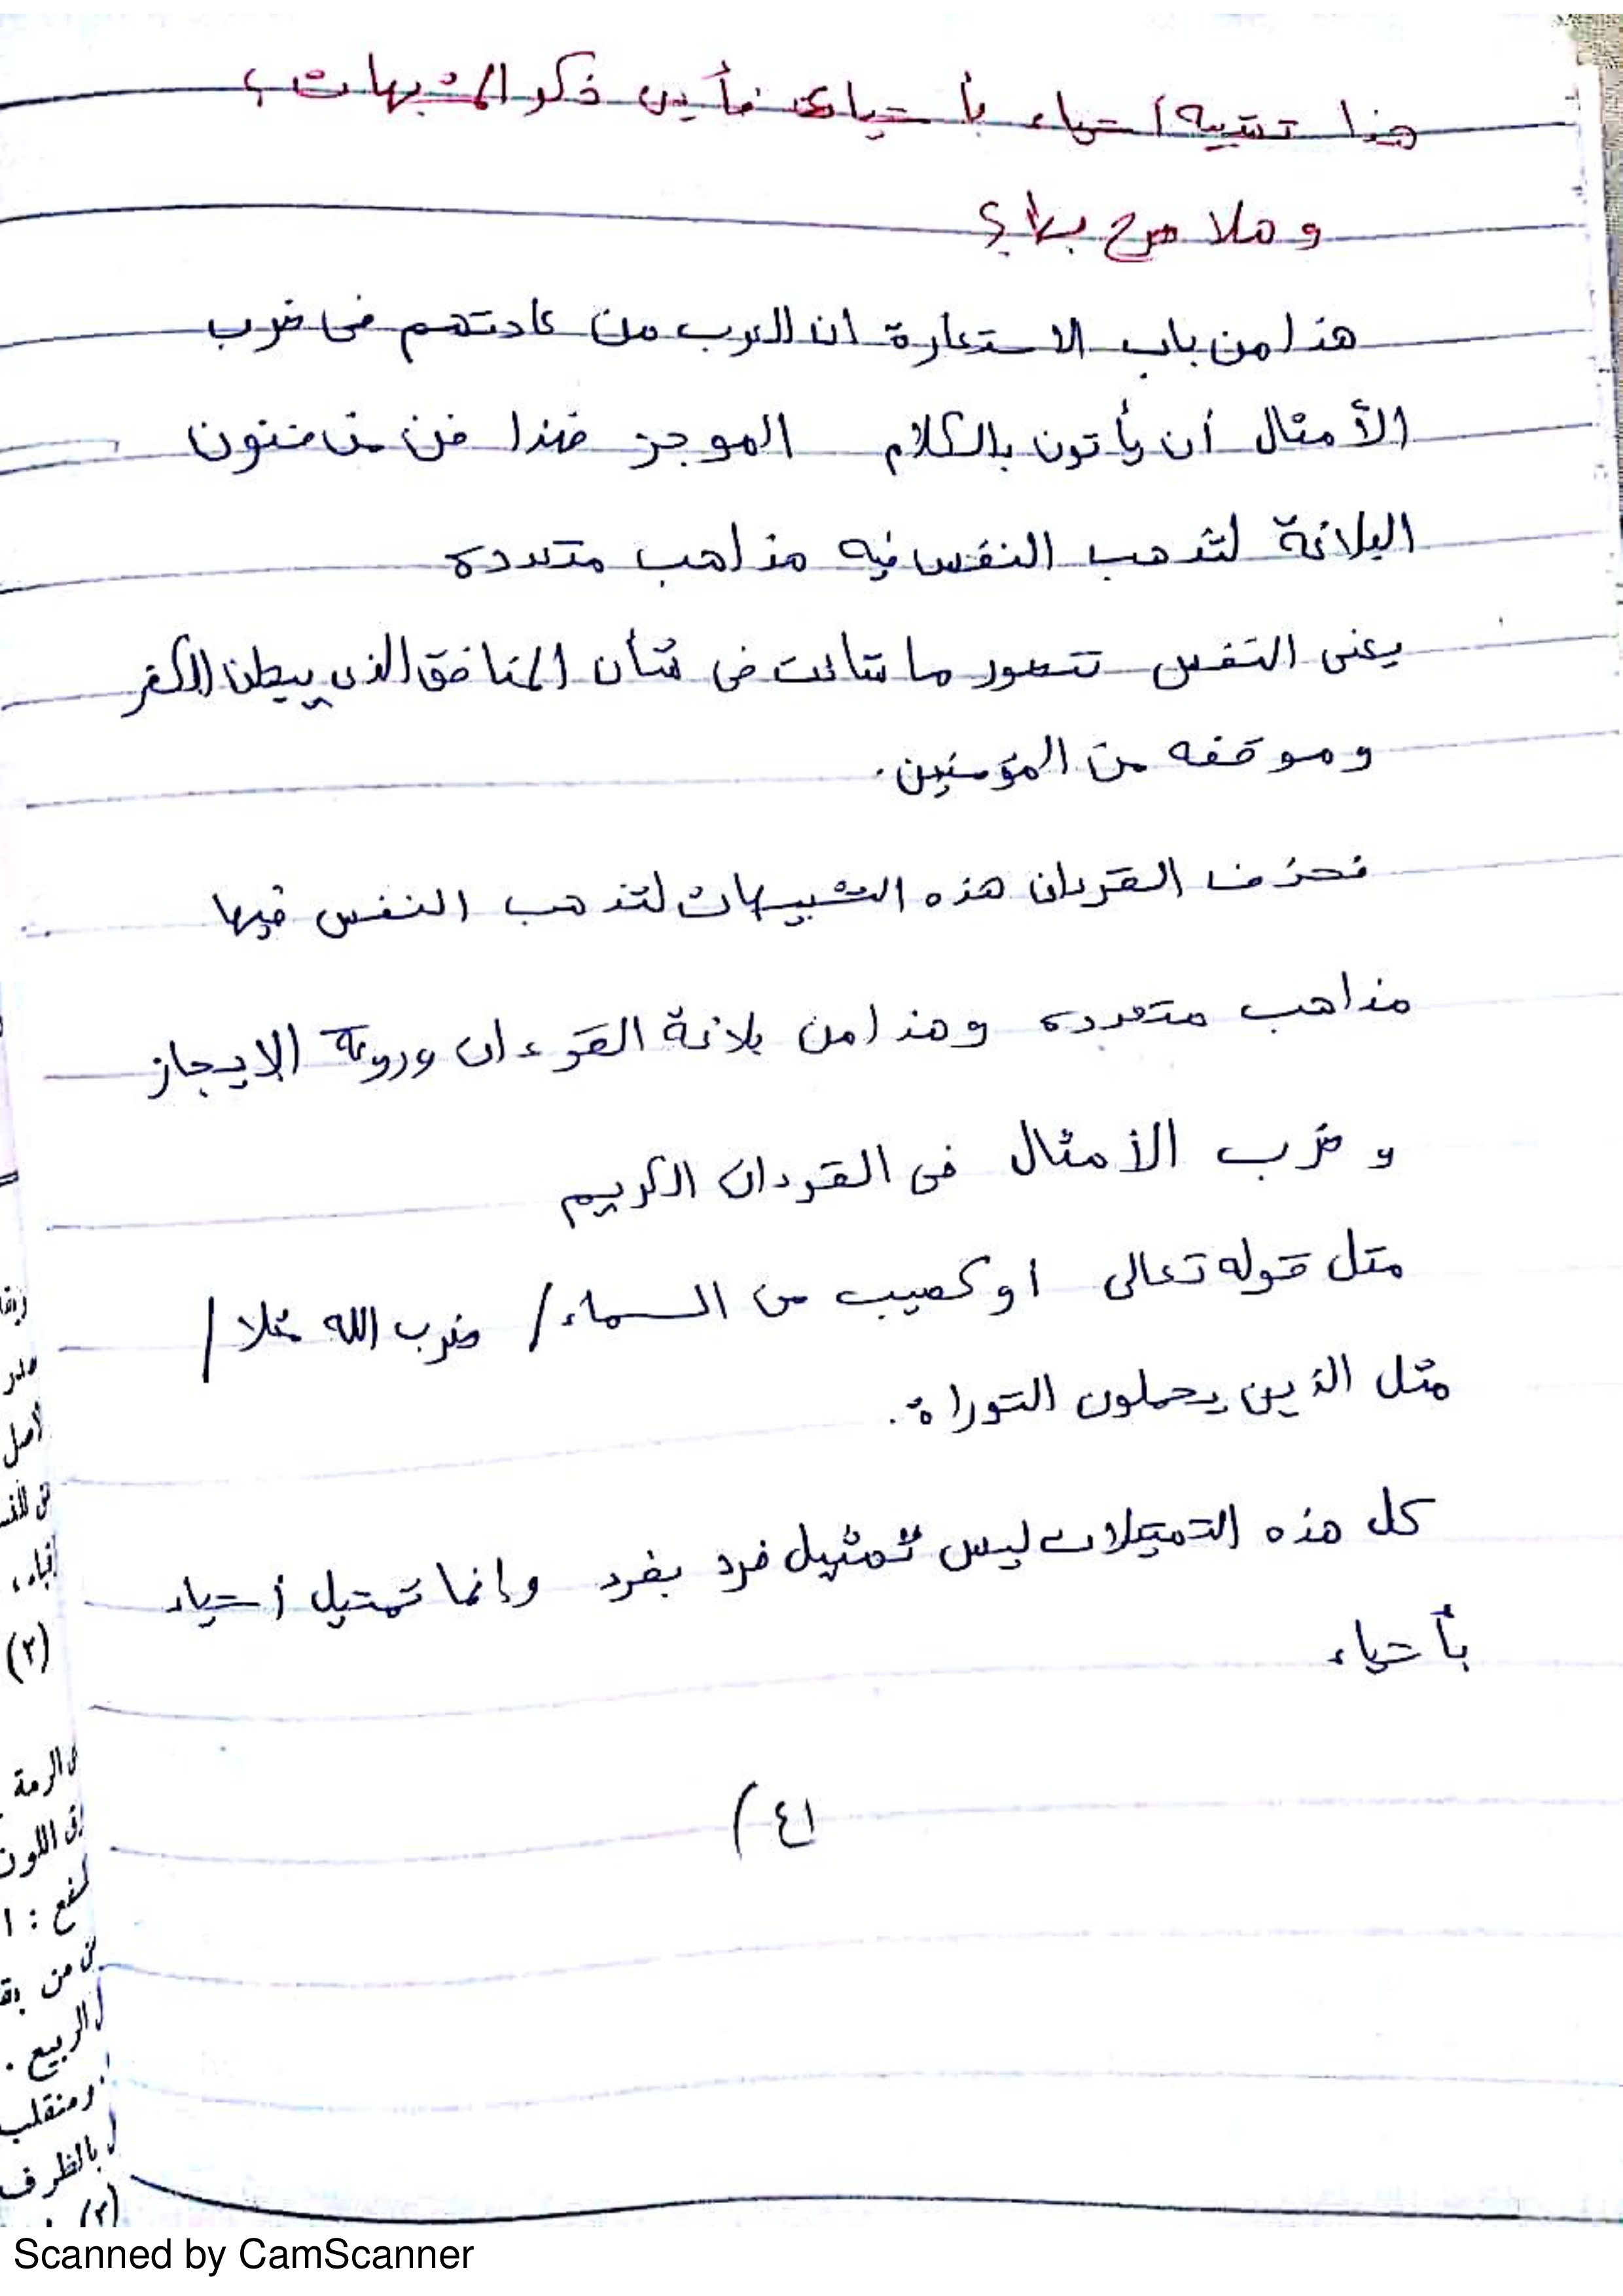 هذا تشبيه أشياء بأشياء فأين ذكر المشبهات؟
و هلا صرح بها؟
هذا من باب الاستعارة ان العرب من عادتهم فى ضرب
الأمثال أن يأتون بالكلام الموجز فهذا فن من فنون
البلاغة لتذهب النفس فيه مذاهب متعدده
يعنى النفس تتصور ما شائت فى شأن المنافق الذى يبطن الكفر
وموقفه من المؤمنين.
فحذف القرءان هذه التشبيهات لتذهب النفس فيها
مذاهب متعدده وهذا من بلاغة القرءان وروعة الإيجاز
و ضرب الأمثال فى القرءان الكريم
مثل قوله تعالى او كصيب من السماء / ضرب الله مثلا /
مثل الذين يحملون التوراة.
كل هذه التمثيلات ليس تمثيل فرد بفرد وإنما تمثيل أشياء
بأشياء
٤١)
(٢)
الرمة
اللون
من
الربيع .
منقلب
بالظرف
(٢)
Scanned by CamScanner